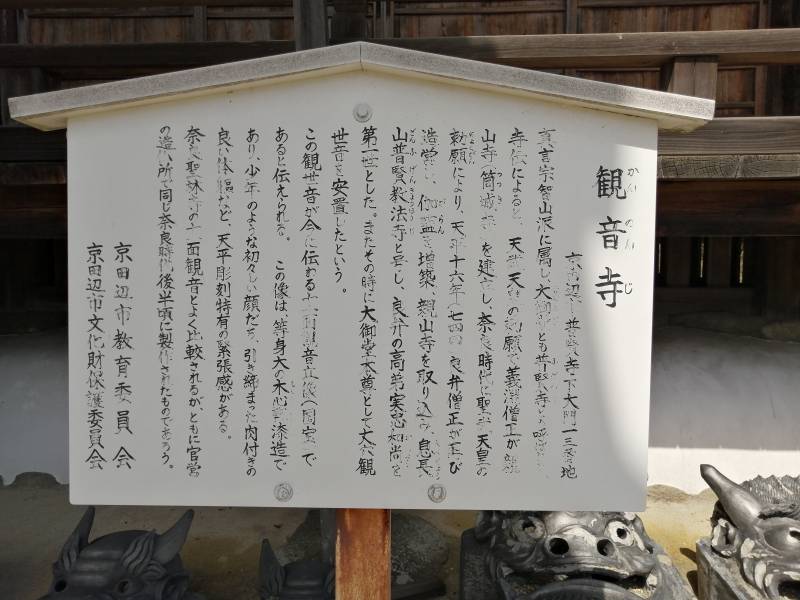 観音寺
かんのんじ
京田辺市普賢寺下大門一三番地
真言宗智山派に属し大御堂とも普賢寺とも呼ばれ
寺伝によると、天武天皇の勅願で義淵僧正が親
山寺（筒城寺）を建立し、奈良時代に聖武天皇の
勅願により、天平十六年（七四四）良弁僧正が再び
造営し、伽藍を増築、親山寺を取り込み、息長
山普賢教法寺と号し、良弁の高弟実忠和尚を
第一世とした。またその時に大御堂本尊として丈六観
世音を安置したという。
この観世音が今に伝わる十一面観音立像（国宝）で
あると伝えられる。この像は、等身大の木心乾漆造で
あり、少年のような初々しい顔だち、引き締まった肉付きの
良い体軀など、天平彫刻特有の緊張感がある。
奈良聖林寺の十一面観音とよく比較されるが、ともに官営
の造仏所で同じ奈良時代後半頃に製作されたものであろう。
京田辺市教育委員会
京田辺市文化財保護委員会